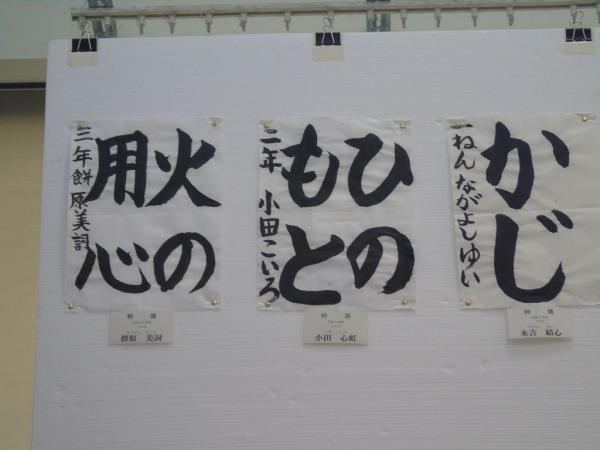 かじ
一ねん ながよしゆい
特選
永吉 結心
ひの
もと
二年 小田こいろ
特選
小田 心虹
火の
用心
三年 餅原美詞
特選
餅原 美詞